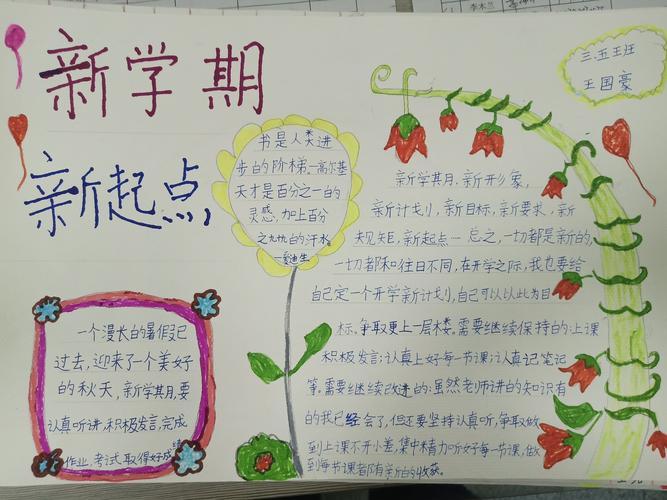 李木兰
新学期
新起点,
三.五班
王国豪
书是人类进
步的阶梯—高尔基
天才是百分之一的
灵感,加上百分
之九九的汗水
—爱迪生
新学期,新形象,
新计划,新目标,新要求,新
规矩,新起点一总之,一切都是新的,
一切都和往日不同,在开学之际,我也要给
自己定一个开学新计划,自己可以以此为目
标,争取更上一层楼。需要继续保持的:上课
积极发言;认真上好每一节课;认真记笔记
等。需要继续改进的:虽然老师讲的知识有
的我已经会了,但还要坚持认真听,争取做
到上课不开小差,集中精力听好每一节课,做
到每节课都有新的收获。
一个漫长的暑假已
过去,迎来了一个美好
的秋天,新学其月,要
认真听讲,积极发言,完成
作业,考试取得好成绩